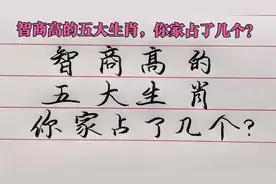 智商高的五大生肖，你家占了几个？
智商高的
五大生肖
你家占了几个？